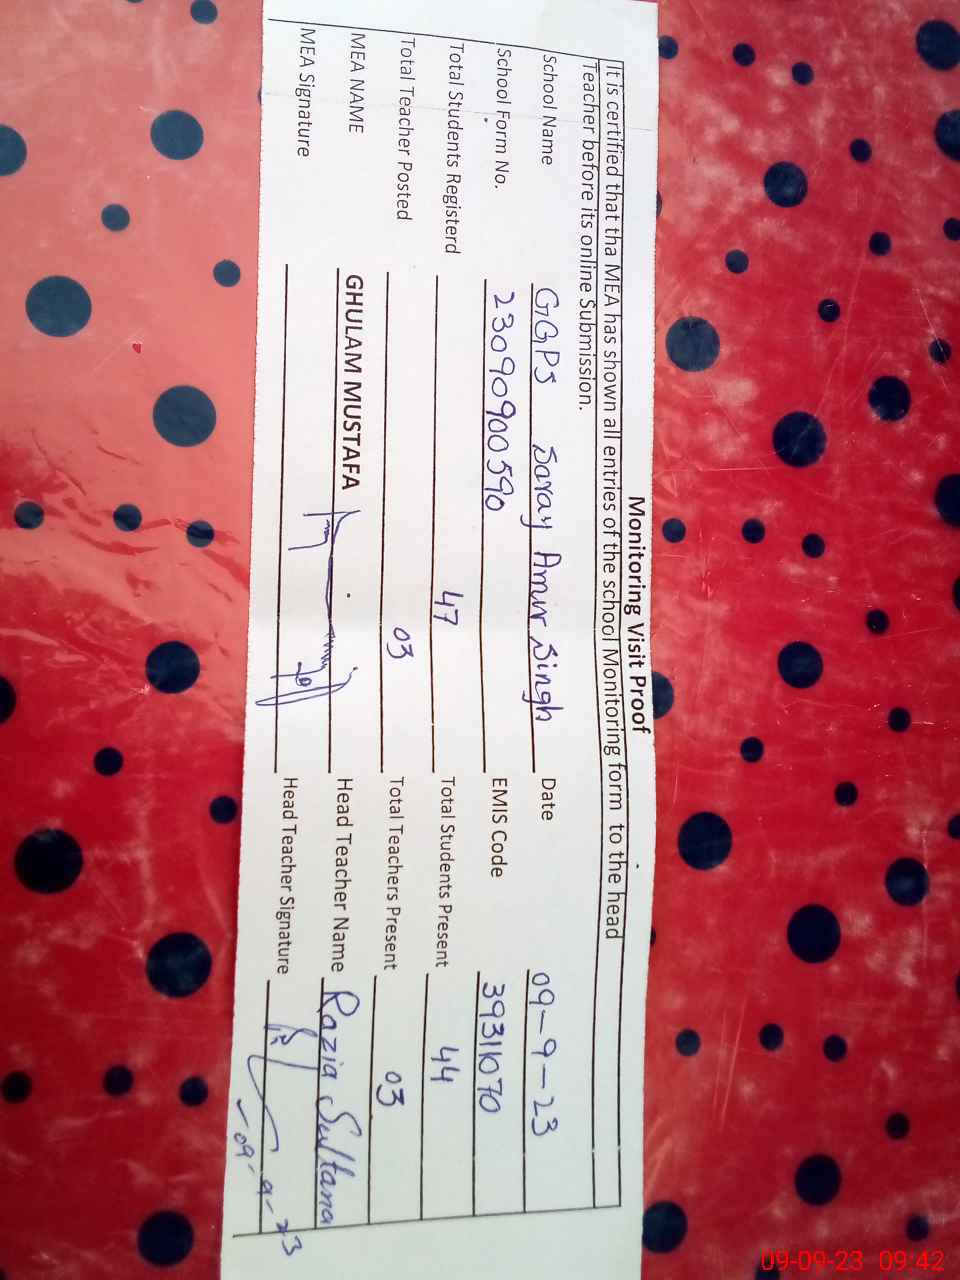 Monitoring Visit Proof
It is certified that tha MEA has shown all entries of the school Monitoring form to the head
Teacher before its online Submission.
School Name GGPS Saray Amir Singh Date 09-9-23
School Form No. 23090900590 EMIS Code 39311070
Total Students Registerd 47 Total Students Present 44
Total Teacher Posted 03 Total Teachers Present 03
MEA NAME GHULAM MUSTAFA Head Teacher Name Razia Sultana
MEA Signature Head Teacher Signature
09-9-23
09-09-23 09:42